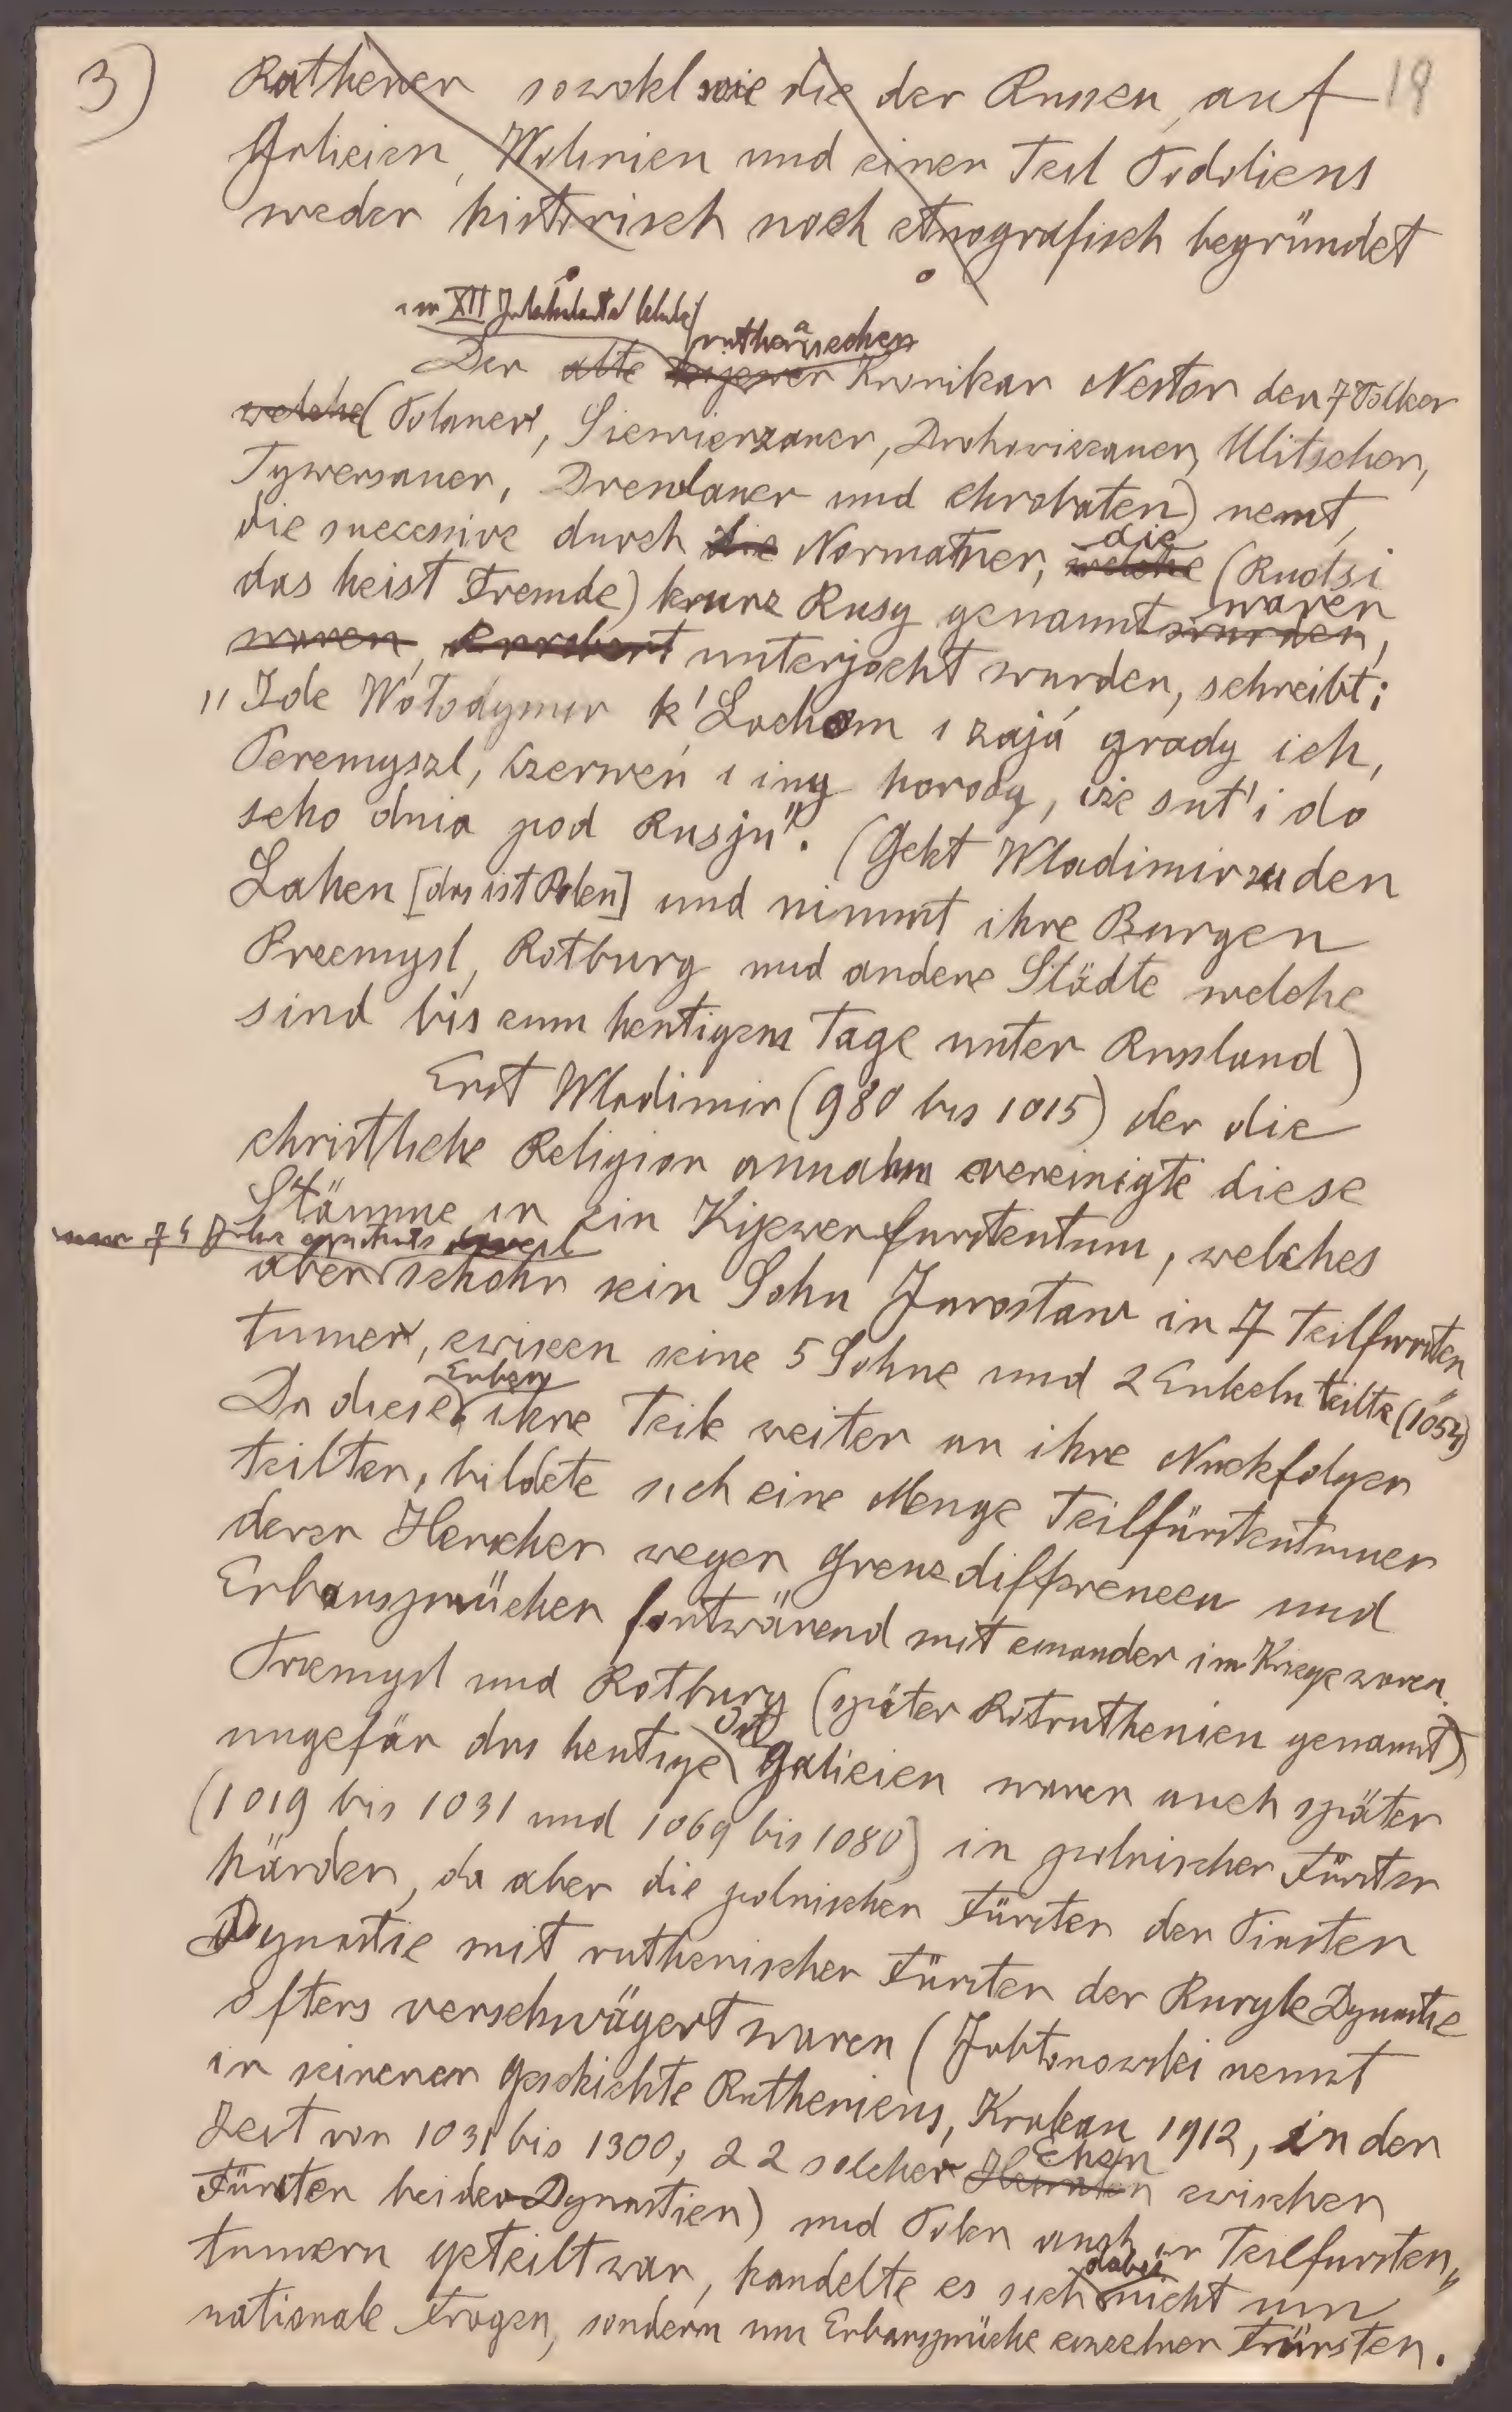 3) Rathener sowohl wie die der Russen, auf 19
Galizien, Wolinien und einen Teil Podoliens
weder historisch noch etnografisch begründet
im XII Jahrhundert lebende ruthenischen
Der alte kijewer Kronikar Nestor den 7 Völker
welche (Polaner, Siewierzaner, Drohowiczaner, Ulitschen,
Tywersaner, Drewlaner und Chrobaten) nennt,
die successive durch die Normatner, welche die (Ruotsi
das heist Fremde) kurz Rusy genannt wurden waren,
waren, unterjocht wurden, schreibt:
"Ide Wołodymir k' Lachom i zają grady ich,
Peremyszl, Czerweń i iny horody, iże sut' i do
seho dnia pod Rusju". (Geht Wladimir zu den
Lahen [das ist Polen] und nimmt ihre Burgen
Przemysl, Rotburg und andere Städte welche
sind bis zum heutigem Tage unter Russland)
Erst Wladimir (980 bis 1015) der die
christliche Religion annahm vereinigte diese
Stämme in ein Kijewerfurstentum, welches
nur 74 Jahre
aber schohn sein Sohn Jarosław in 7 Teilfursten
tumer, zwiscen seine 5 Sohne und 2 Enkeln teilte (1054)
Da diese Erben ihre Teile weiter an ihre Nachfolger
teilten, bildete sich eine Menge Teilfürstentumer
deren Herscher wegen Grenzdifferenzen und
Erbansprüchen fortwärend mit einander im Kriege waren.
Przemysl und Rotburg (später Rotruthenien genannt)
ungefär das heutige Ost Galizien waren auch später
(1019 bis 1031 und 1069 bis 1080) in polnischer Fürsten
händen, da aber die polnischen Fürsten der Piasten
Dynastie mit ruthenischen Fürsten der Ruryk Dynastie
öfters verschwägert waren (Jabłonowski nennt
in seinener Geschichte Rutheniens, Krakau 1912, in der
Zeit von 1031 bis 1300, 22 solcher Heiraten Ehen zwischen
Fürsten beider Dynastien) und Polen auch in Teilfursten"
tumern geteilt war, handelte es sich dabei nicht um
nationale Fragen, sondern um Erbansprüche einzelner Fürsten.